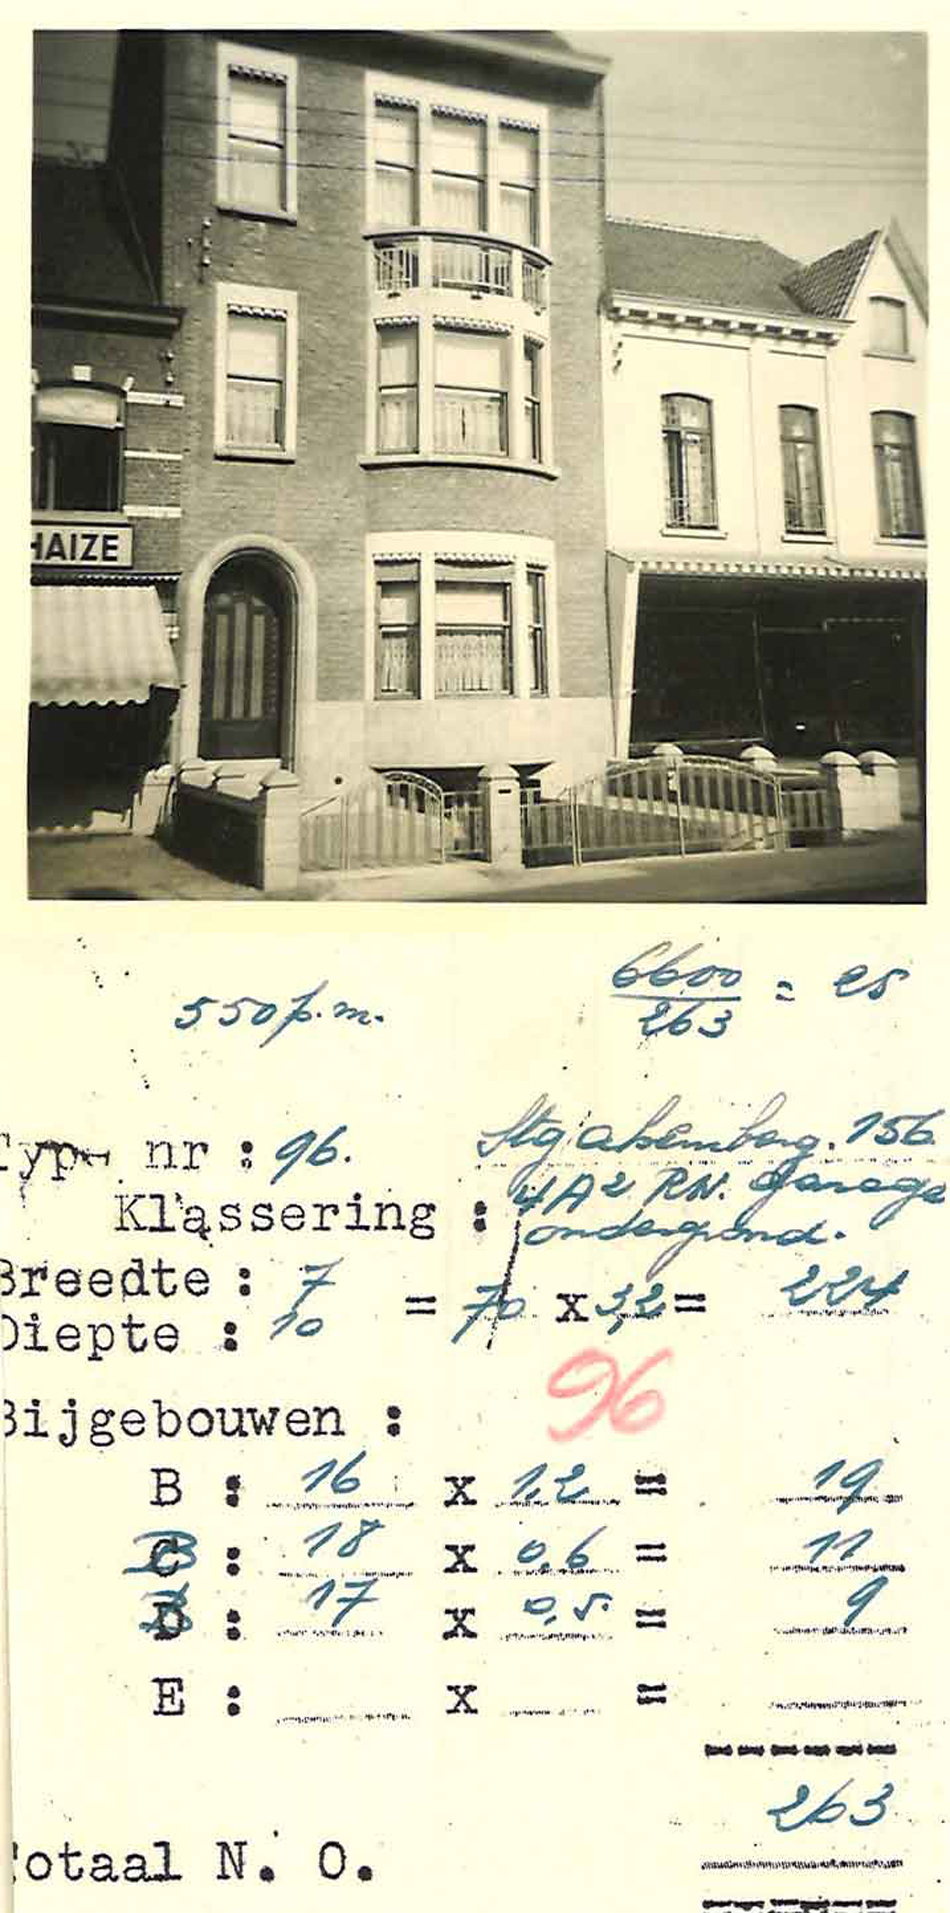 HAIZE
550 p.m.
6600
263 = 25
Type nr : 96. Stg alsemberg. 156
Klassering : 4A2 RN. Garage
ondergrond.
Breedte : 7
= 70 x 3,2 = 224
Diepte : 10
96
Bijgebouwen :
B : 16 x 1,2 = 19
: 18 x 0,6 = 11
: 17 x 0,5 = 9
E : x =
263
Totaal N. O.